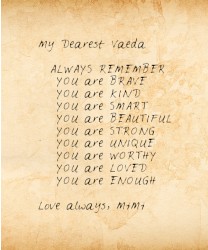 My Dearest Vaeda
ALWAYS REMEMBER
You are BRAVE
You are KIND
You are SMART
You are BEAUTIFUL
You are STRONG
You are UNIQUE
You are WORTHY
You are LOVED
You are ENOUGH
Love always,